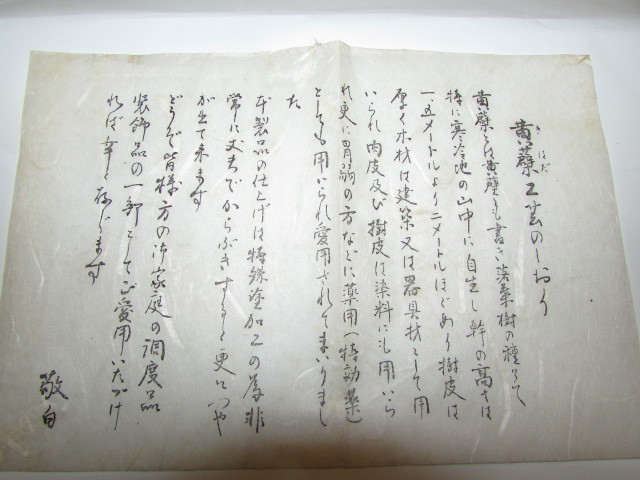 黄蘗工芸のしおり
きはだ
黄蘗とは黄蘗とも書き落葉樹の種るいで
特に寒冷地の山中に自生し幹の高さは
一、五メートルより二メートルほどあり樹皮は
厚く木材は建築又は器具材として用
いられ肉皮及び樹皮は染料にも用いら
れ更に胃弱の方などに薬用(特効薬)
としても用いられ愛用されてまいりまし
た
本製品の仕上げは特殊塗加工の為非
常に丈夫でからぶきすると更につや
が出て来ます
どうぞ皆様方の御家庭の調度品
装飾品の一部としてご愛用いただけ
れば幸と存じます
敬白